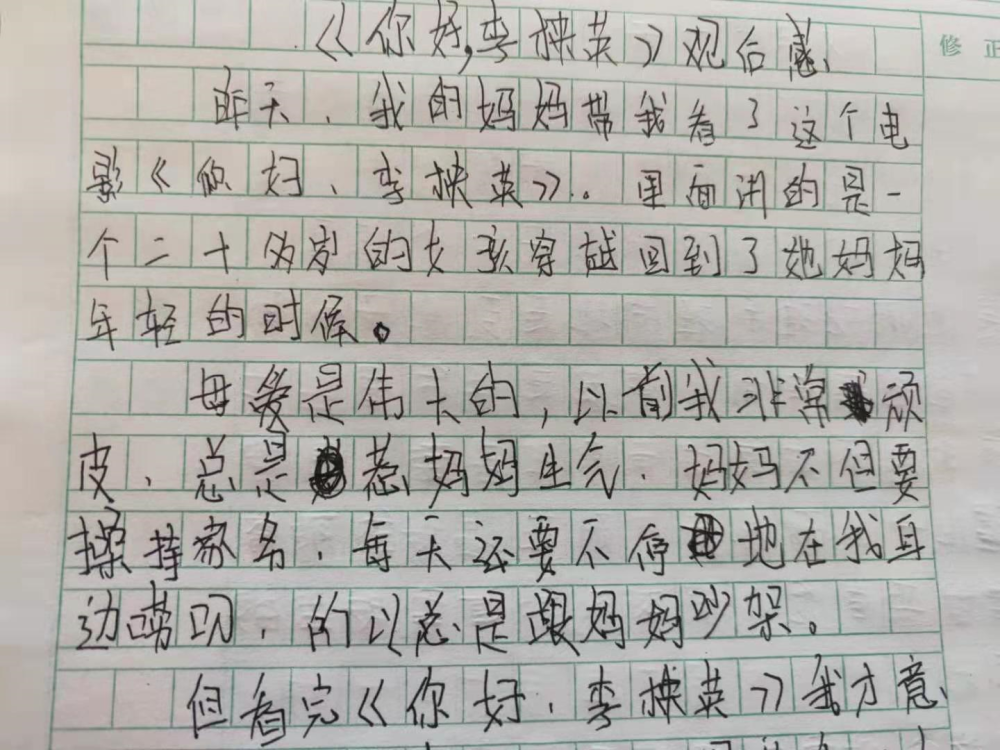 《你好,李焕英》观后感
修正
昨天,我的妈妈带我看了这个电
影《你好,李焕英》。里面讲的是一
个二十多岁的女孩穿越回到了她妈妈
年轻的时候。
母爱是伟大的,以前我非常顽
皮,总是惹妈妈生气,妈妈不但要
操持家务,每天还要不停地在我耳
边唠叨,的以总是跟妈妈吵架。
但看完《你好,李焕英》我才意